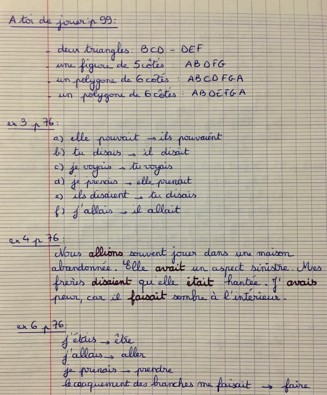 A toi de jouer p 99:
- deux triangles BCD - DEF
- une figure de 5 côtés : ABDFG
- un polygone de 6 côtés : ABCDFGA
- un polygone de 6 côtés : ABDEFGA
ex 3 p 76:
a) elle pouvait → ils pouvaient
b) tu disais → il disait
c) je voyais → tu voyais
d) je prenais → elle prenait
e) ils disaient → tu disais
f) j'allais → il allait
ex 4 p 76
Nous allions souvent jouer dans une maison
abandonnée. Elle avait un aspect sinistre. Mes
frères disaient qu'elle était hantée. J'avais
peur, car il faisait sombre à l'intérieur.
ex 6 p 76
j'étais → être
j'allais → aller
je prenais → prendre
le craquement des branches me faisait → faire